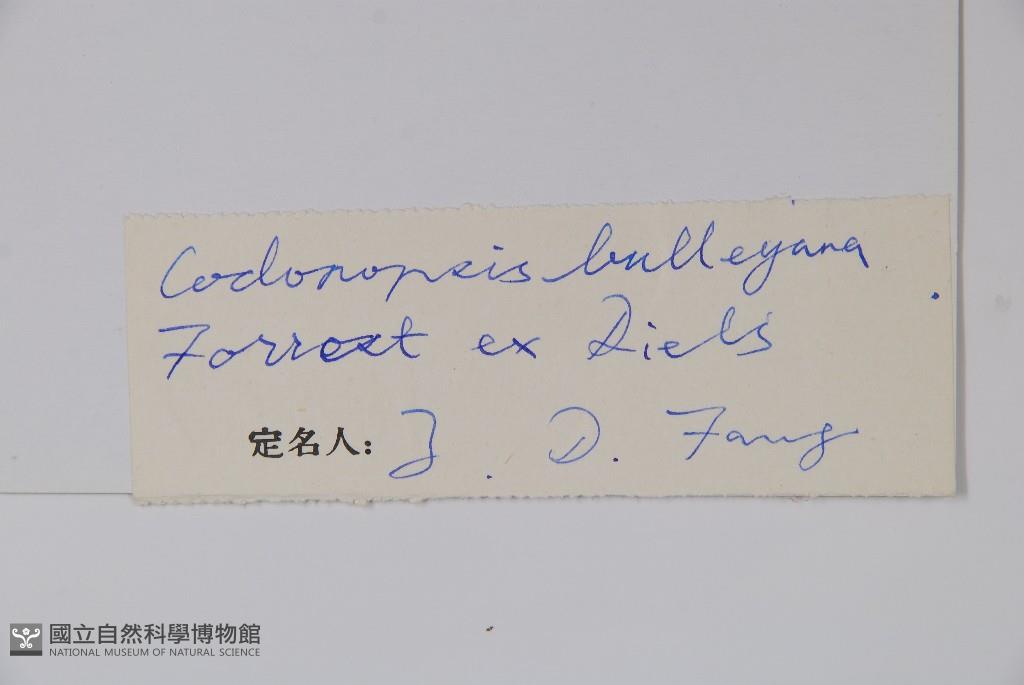 Codonopsis bulleyana
Forrest ex Diels
定名人: J. D. Fang
國立自然科學博物館
NATIONAL MUSEUM OF NATURAL SCIENCE